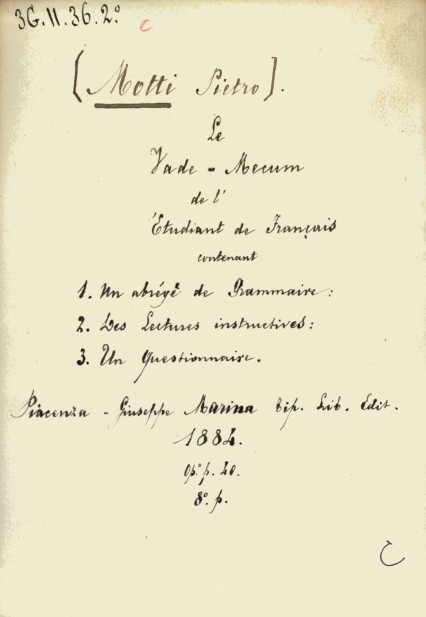 3G.11.36.2º
c
(Motti Pietro).
Le
Vade-Mecum
de l'
Étudiant de Français
contenant
1. Un abrégé de Grammaire:
2. Des Lectures instructives:
3. Un Questionnaire.
Piacenza - Giuseppe Marina Tip. Lib. Edit.
1884.
op. p. 40.
8º. p.